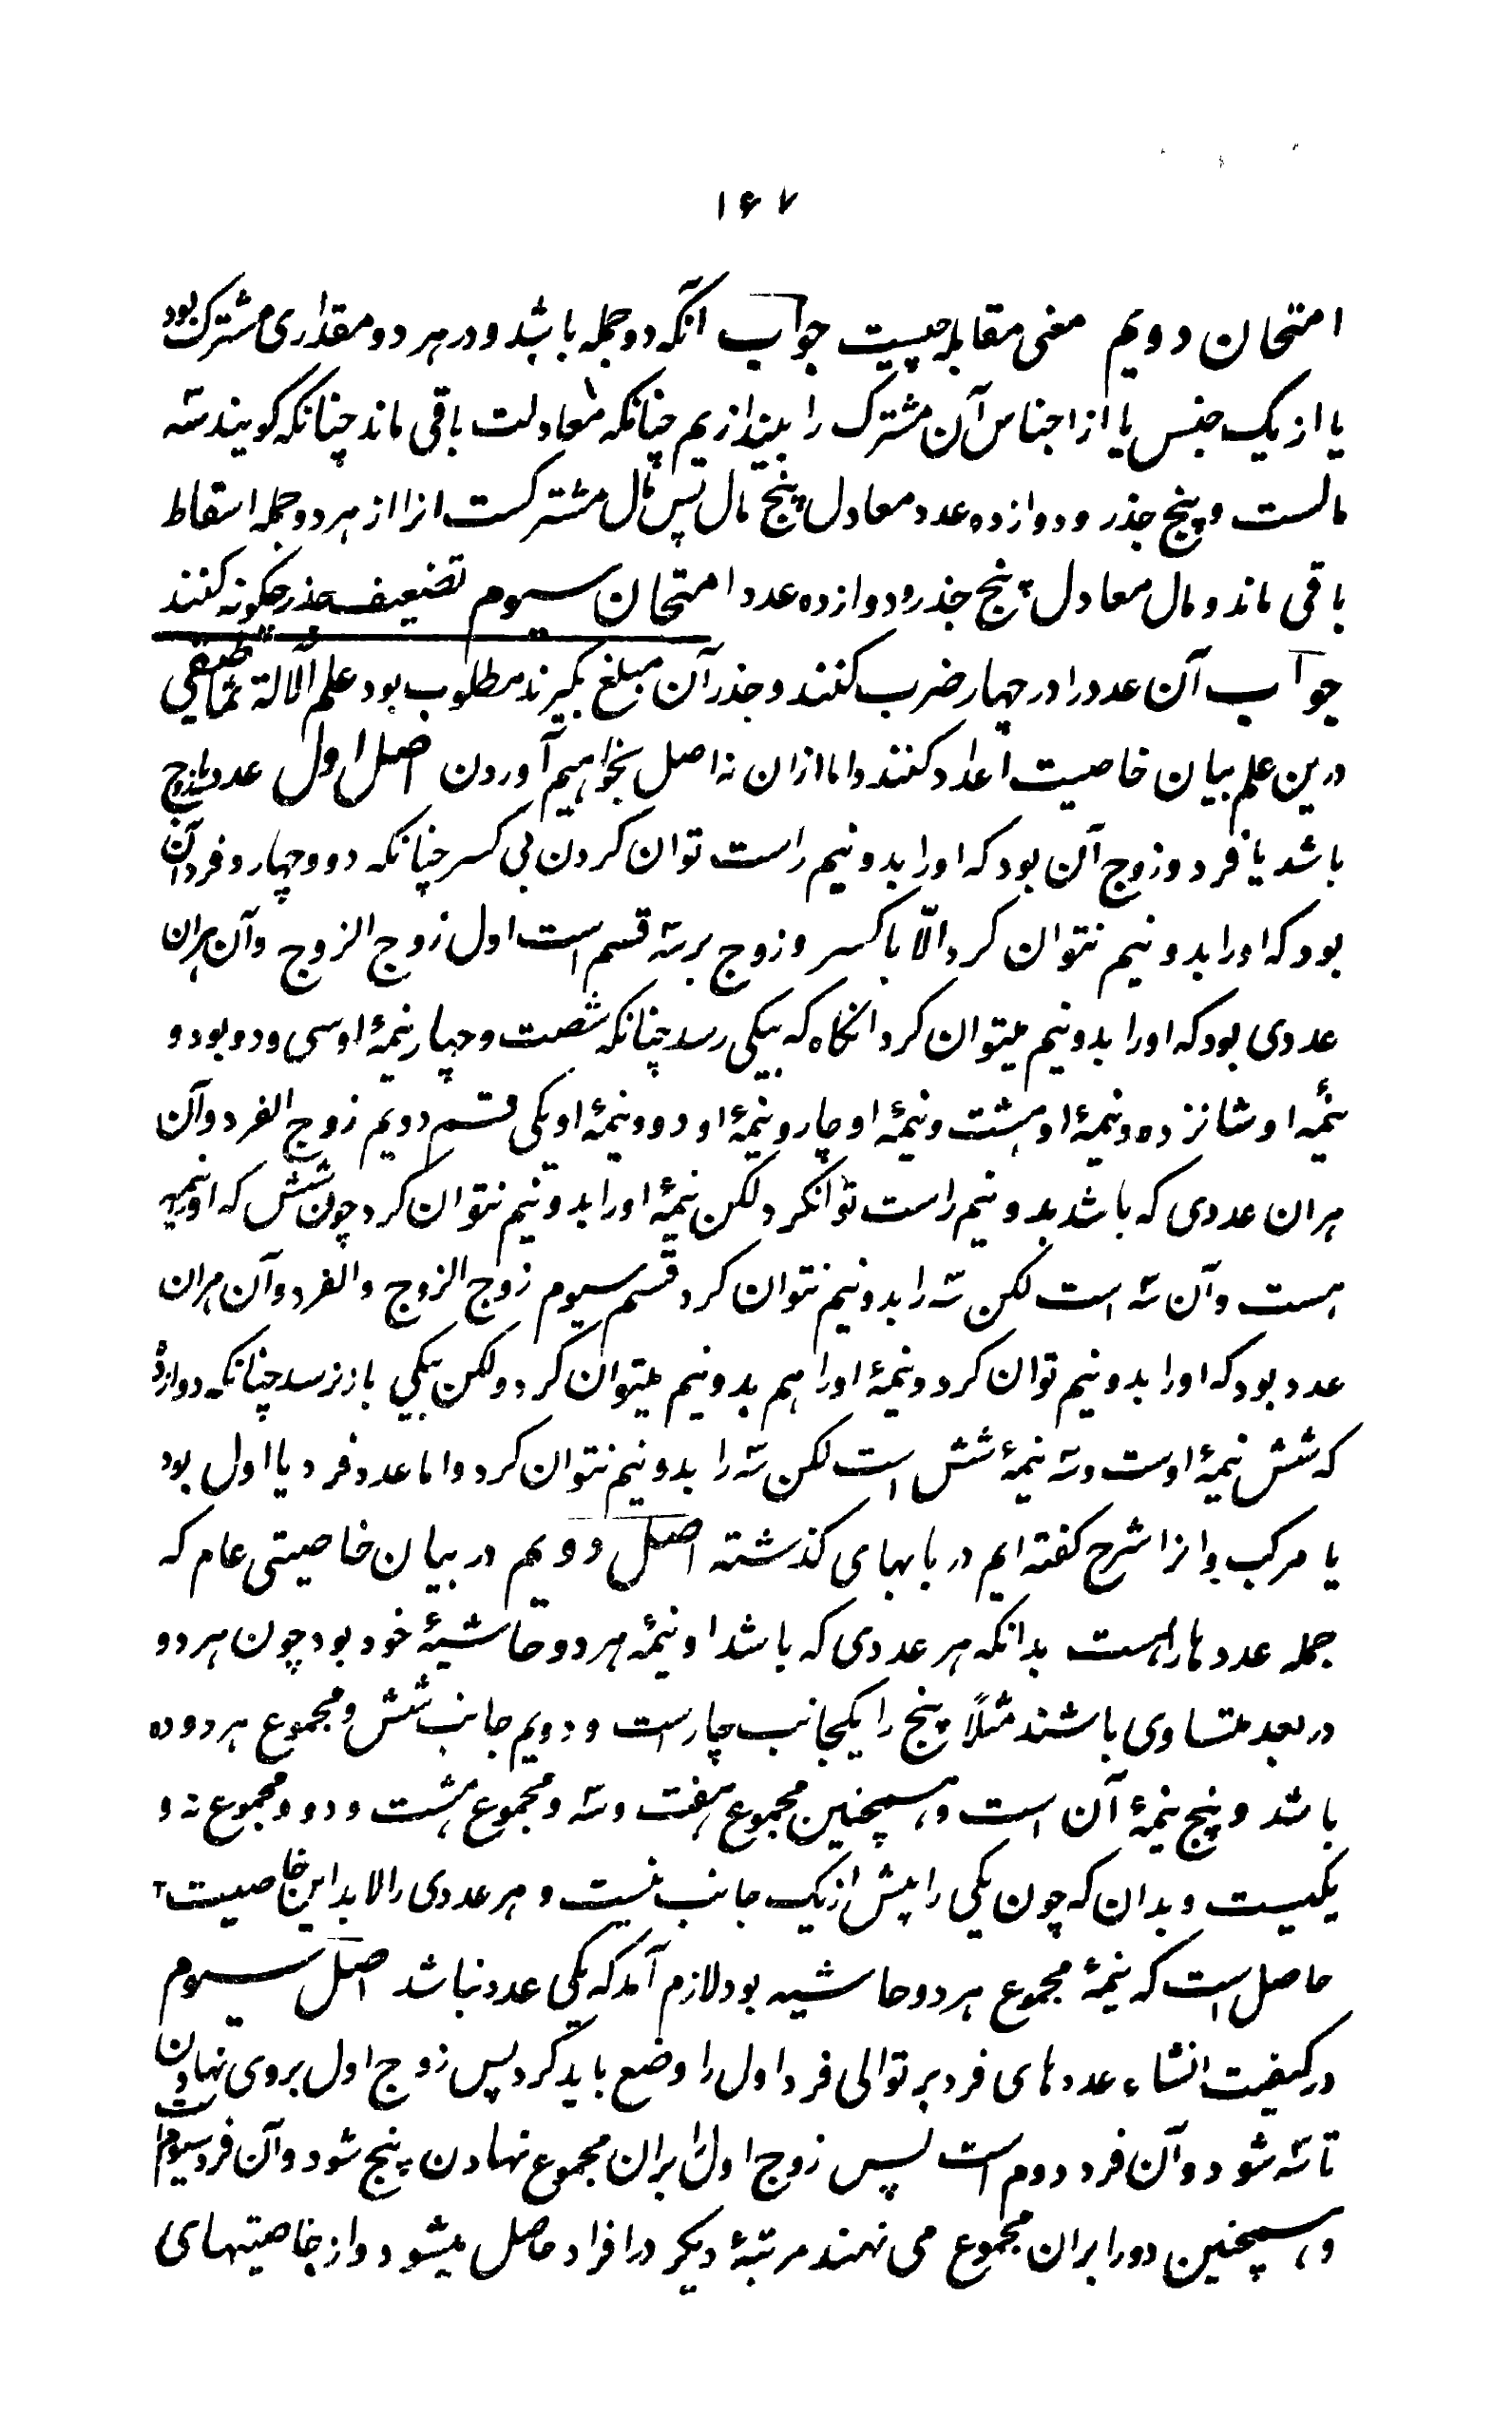 ۱۶۷
امتحان دویم معنی مقابله چیست جواب آنکه دو جمله باشد و در هر دو مقداری مشترک بود
یا از یک جنس یا از اجناس آن مشترک را بیندازیم چنانکه معادلت باقی ماند چنانکه کویند سه
مالست و پنج جذر و دوازده عدد معادل پنج مال پس مال مشترکست انرا از هر دو جمله اسقاط
باقی ماند دو مال معادل پنج جذر و دوازده عدد امتحان سیوم تضعیف جذر چکونه کنند
جواب آن عدد را در چهار ضرب کنند و جذر آن مبلغ بکیرند مطلوب بود علم
درین علم بیان خاصیت اعداد کنند و اما ازان نه اصل بخواهیم آوردن اصل اول عدد یا زوج
باشد یا فرد و زوج آن بود که اورا بدو نیم راست توان کردن بی کسر چنانکه دو و چهار و فرد آن
بود که اورا بدو نیم نتوان کرد الّا با کسر و زوج بر سه قسم است اول زوج الزوج و آن هران
عددی بود که اورا بدو نیم میتوان کرد انکاه که بیکی رسد چنانکه شصت و چهار نیمهٔ او سی و دو بود و
نیمهٔ او شانزده و نیمهٔ او هشت و نیمهٔ او چار و نیمهٔ او دو و نیمهٔ او یکی قسم دویم زوج الفرد و آن
هران عددی که باشد بدو نیم راست توانکرد لکن نیمهٔ اورا بدو نیم نتوان کرد چون شش که اورا نیمه
هست و آن سه است لکن سه را بدو نیم نتوان کرد قسم سیوم زوج الزوج والفرد و آن هران
عدد بود که اورا بدو نیم توان کرد و نیمهٔ اورا هم بدو نیم میتوان کرد و لکن بیکی باز نرسد چنانکه دوازده
که شش نیمهٔ اوست و سه نیمهٔ شش است لکن سه را بدو نیم نتوان کرد و اما عدد فرد یا اول بود
یا مرکب و انرا شرح کفته ایم در بابهای کذشته اصل دویم در بیان خاصیتی عام که
جمله عددها را هست بدانکه هر عددی که باشد او نیمهٔ هر دو حاشیهٔ خود بود چون هر دو
در بعد متساوی باشند مثلاً پنج را یکجانب چار است و دویم جانب شش و مجموع هر دو ده
باشد و پنج نیمهٔ آن است و همچنین مجموع هفت و سه و مجموع هشت و دو و مجموع نه و
یکیست و بدان که چون یکی را بیش از یک جانب نیست و هر عددی را لابد این خاصیت
حاصل است که نیمهٔ مجموع هر دو حاشیه بود لازم آمد که یکی عدد نباشد اصل سیوم
در کیفیت انشاء عددهای فرد بر توالی فرد اول را وضع باید کرد پس زوج اول بروی نهادن
تا سه شود و آن فرد دوم است پس زوج اول را بران مجموع نهادن پنج شود و آن فرد سیوم است
و همچنین دو را بران مجموع می نهند مرتبهٔ دیکر در افراد حاصل میشود و از خاصیتهای